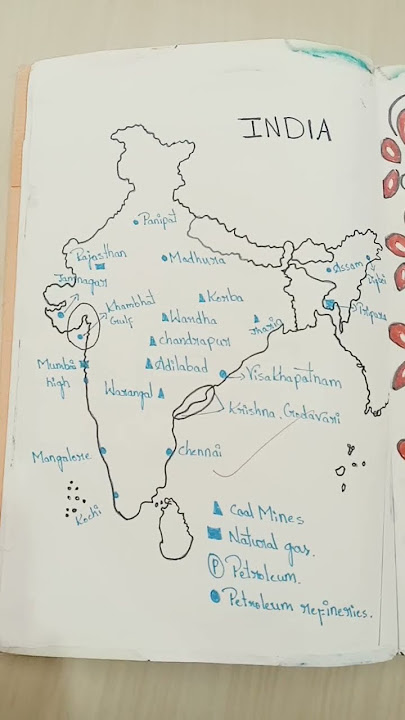 INDIA
Panipat
Rajasthan
Madhura
Assam
Digboi
Jamnagar
Khambhat
Gulf
Korba
Tripura
Wandha
Jharia
Chandrapur
Mumbai
high
Adilabad
Visakhapatnam
Warangal
Krishna, Godavari
Mangalore
Chennai
Kochi
Coal Mines
Natural gas.
P Petroleum.
Petroleum refineries.